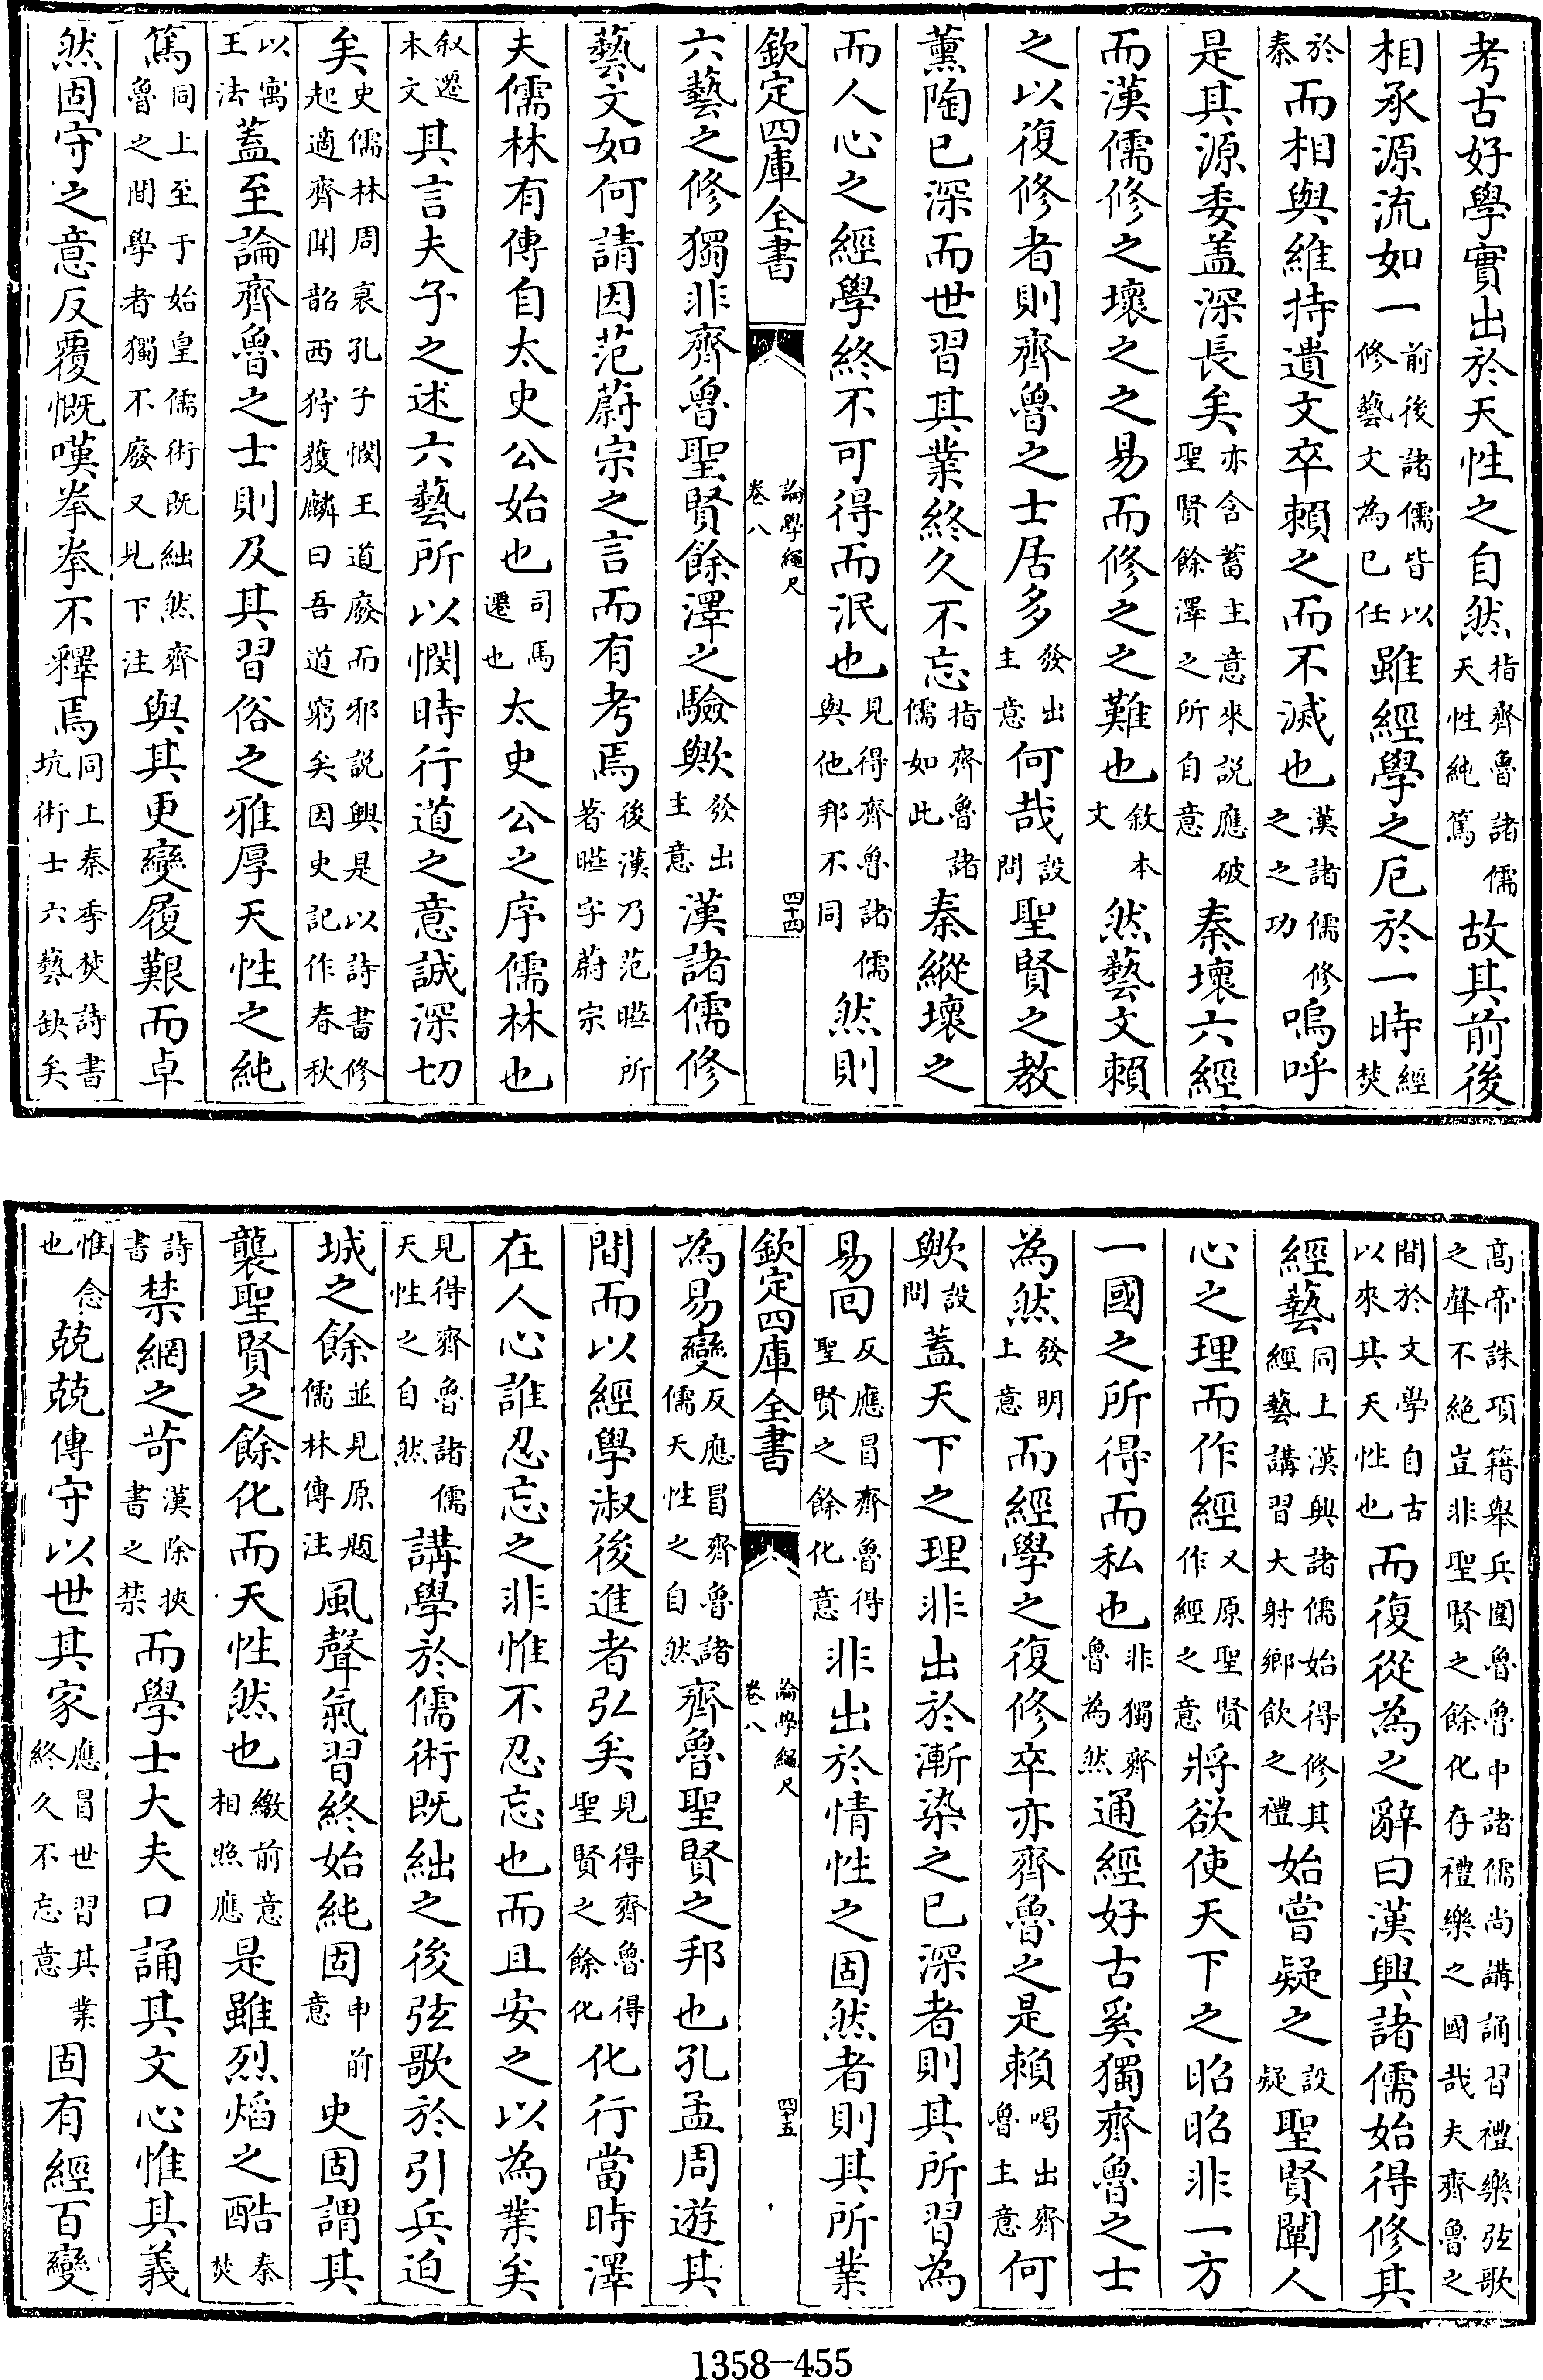 考古好學實出於天性之自然指齊魯諸儒天性純篤故其前後
相承源流如一前後諸儒皆以修藝文為已任雖經學之厄於一時經焚
於秦而相與維持遺文卒賴之而不滅也漢諸儒修之之功嗚呼
是其源委盖深長矣亦含蓄主意來說應破聖賢餘澤之所自意秦壞六經
而漢儒修之壞之之易而修之之難也敘本文然藝文賴
之以復修者則齊魯之士居多發出主意何哉設問聖賢之教
薰陶已深而世習其業終久不忘指齊魯諸儒如此秦縱壞之
而人心之經學終不可得而泯也見得齊魯諸儒與他邦不同然則
欽定四庫全書 論學繩尺 卷八 四十四
六藝之修獨非齊魯聖賢餘澤之驗歟發出主意漢諸儒修
藝文如何請因范蔚宗之言而有考焉後漢乃范曄所著曄字蔚宗
夫儒林有傳自太史公始也司馬遷也太史公之序儒林也
叙遷本文其言夫子之述六藝所以憫時行道之意誠深切
矣史儒林周衰孔子憫王道廢而邪説興是以詩書修起適齊聞韶西狩獲麟曰吾道窮矣因史記作春秋
以寓王法蓋至論齊魯之士則及其習俗之雅厚天性之純
篤同上至于始皇儒術既絀然齊魯之間學者獨不廢又見下注與其更變履艱而卓
然固守之意反覆慨嘆拳拳不釋焉同上秦季焚詩書坑術士六藝缺矣
高帝誅項籍舉兵圍魯魯中諸儒尚講誦習禮樂弦歌之聲不絶豈非聖賢之餘化存禮樂之國哉夫齊魯之
間於文學自古以來其天性也而復從為之辭曰漢興諸儒始得修其
經藝同上漢興諸儒始得修其經藝講習大射鄉飲之禮始嘗疑之設疑聖賢闡人
心之理而作經又原聖賢作經之意將欲使天下之昭昭非一方
一國之所得而私也非獨齊魯為然通經好古奚獨齊魯之士
為然發明上意而經學之復修卒亦齊魯之是賴喝出齊魯主意何
歟設問蓋天下之理非出於漸染之已深者則其所習為
易回反應冒齊魯得聖賢之餘化意非出於情性之固然者則其所業
欽定四庫全書 論學繩尺 卷八 四十五
為易變反應冒齊魯諸儒天性之自然齊魯聖賢之邦也孔孟周遊其
間而以經學淑後進者弘矣見得齊魯得聖賢之餘化化行當時澤
在人心誰忍忘之非惟不忍忘也而且安之以為業矣
見得齊魯諸儒天性之自然講學於儒術既絀之後弦歌於引兵迫
城之餘並見原題儒林傳注風聲氣習終始純固申前意史固謂其
襲聖賢之餘化而天性然也繳前意相照應是雖烈熖之酷秦焚
詩書禁網之苛漢除挾書之禁而學士大夫口誦其文心惟其義
惟念也兢兢傳守以世其家應冒世習其業終久不忘意固有經百變
1358-455